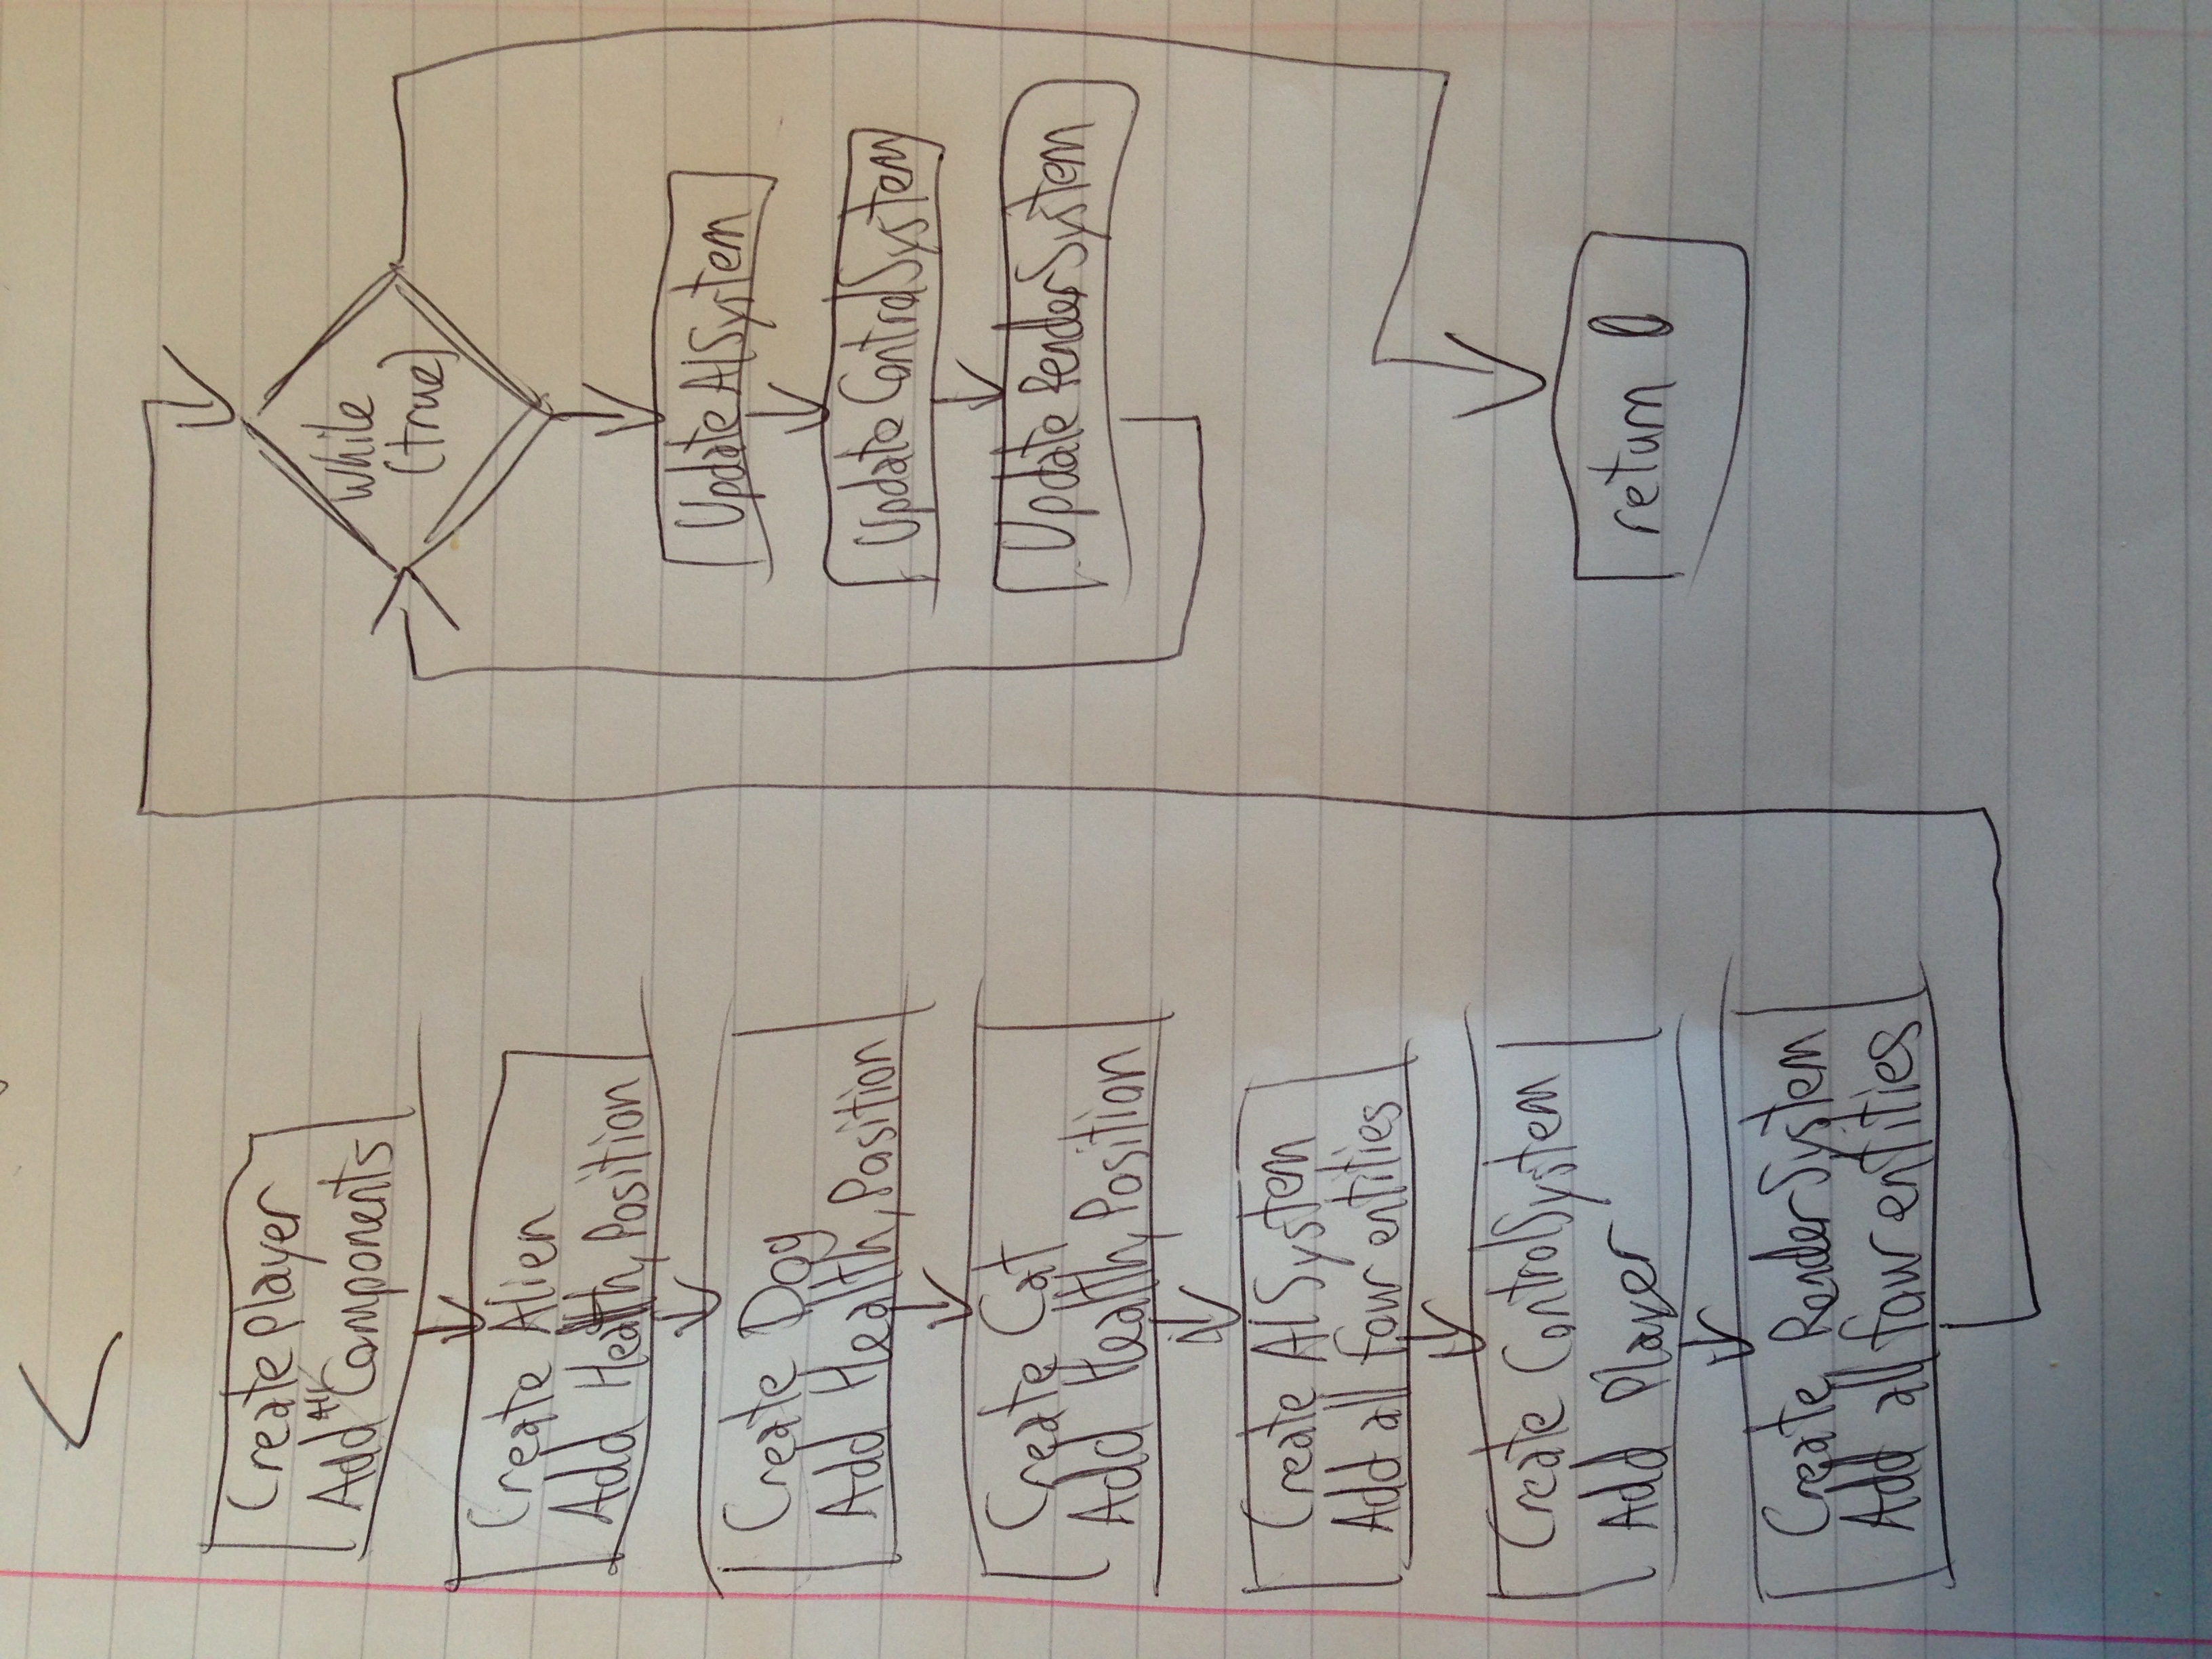 Create Player
Add All Components
Create Alien
Add Health, Position
Create Dog
Add Health, Position
Create Cat
Add Health, Position
Create AISystem
Add all four entities
Create ControlSystem
Add Player
Create RenderSystem
Add all four entities
while
(true)
Update AISystem
Update ControlSystem
Update RenderSystem
return 0